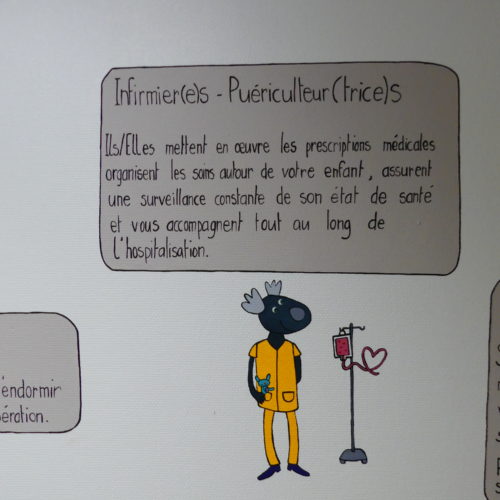 Infirmier(e)s - Puériculteur(trice)s
Ils/Elles mettent en œuvre les prescriptions médicales
organisent les soins autour de votre enfant, assurent
une surveillance constante de son état de santé
et vous accompagnent tout au long de
L'hospitalisation.
endormir